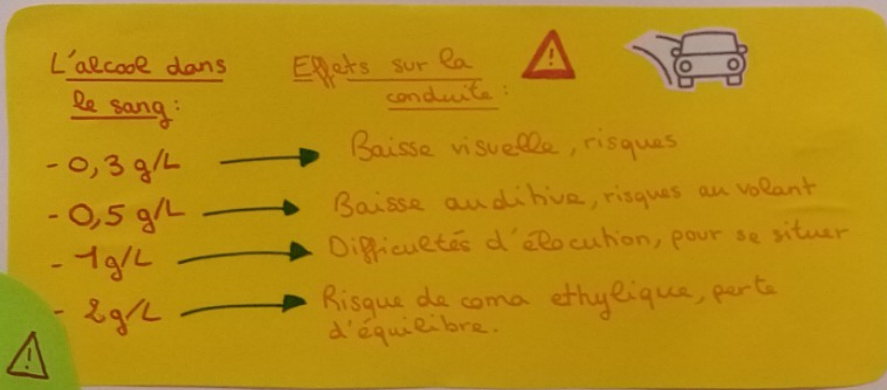 L'alcool dans
le sang :
Effets sur la
conduite :
- 0,3 g/L → Baisse visuelle, risques
- 0,5 g/L → Baisse auditive, risques au volant
- 1g/L → Difficultés d'élocution, pour se situer
- 2g/L → Risque de coma ethylique, perte
d'équilibre.